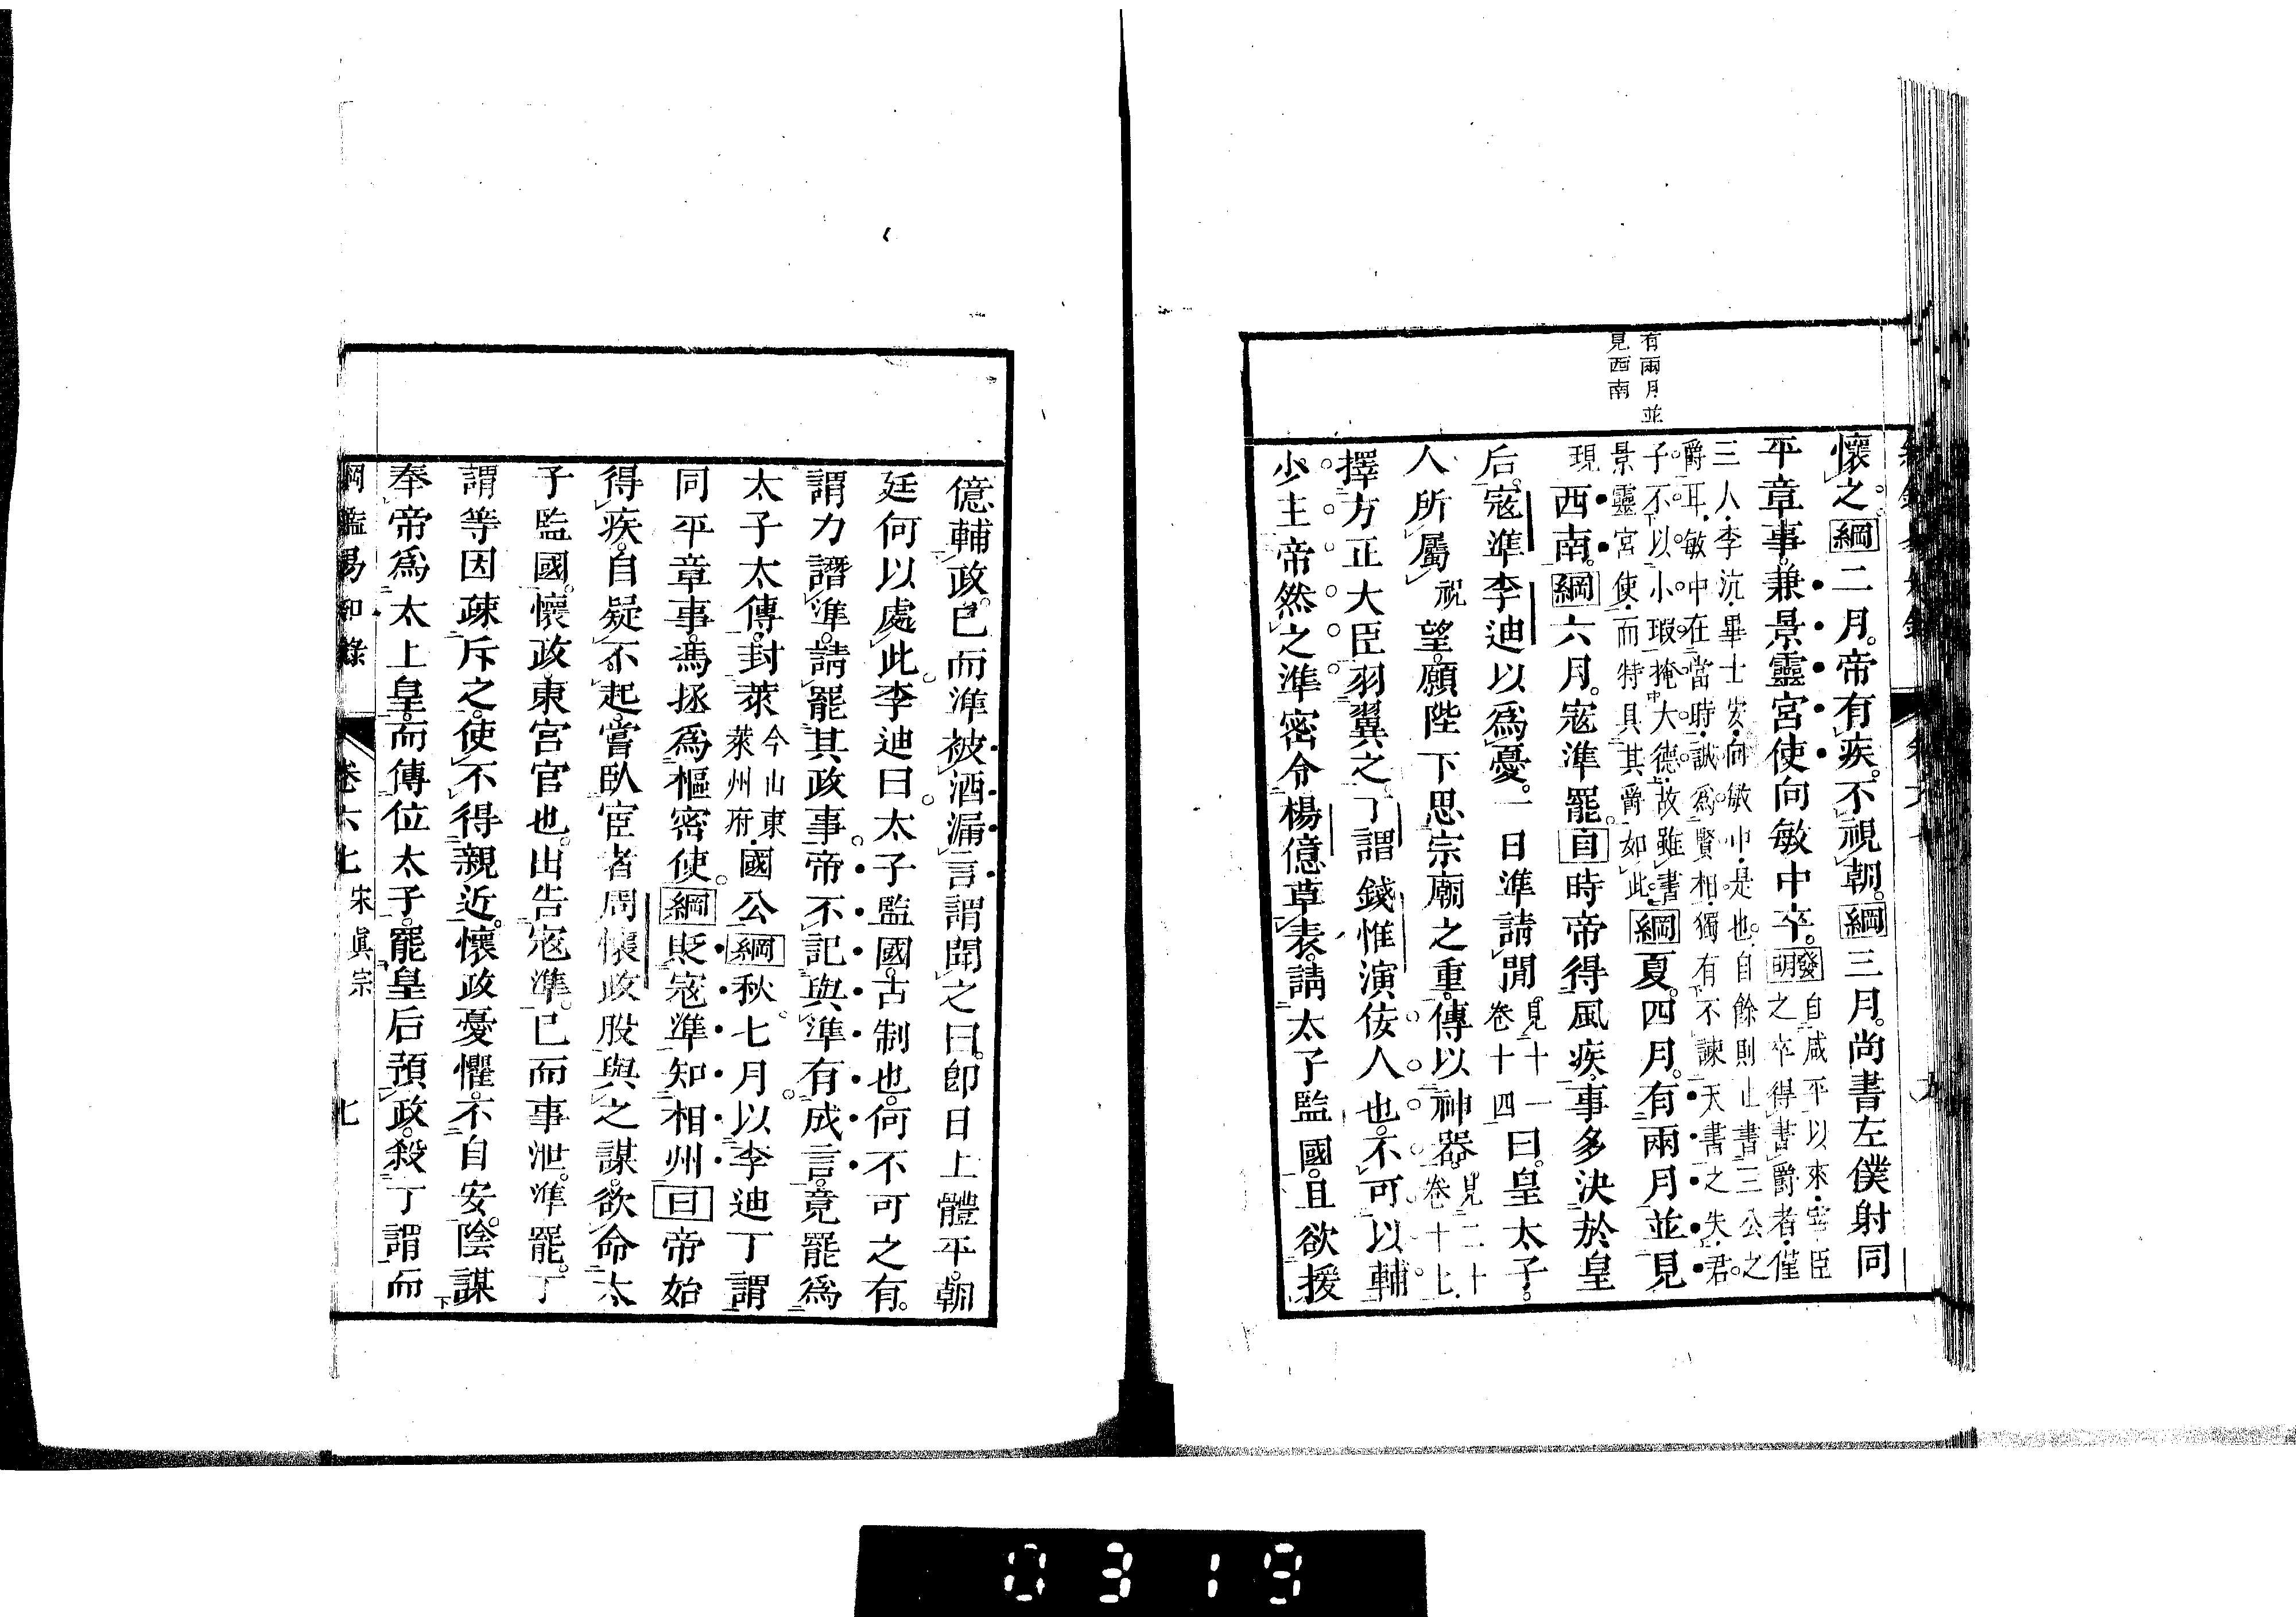 有兩月並
見西南
懷之綱二月帝有疾不視朝綱三月尚書左僕射同
平章事兼景靈宮使向敏中卒發明自咸平以來宰臣
之卒得書爵者僅
三人李沆畢士安向敏中是也自餘則止書三公之
爵耳敏中在當時誠為賢相獨有不諫天書之失君
子不以小瑕掩大德故雖書
景靈宮使而特具其爵如此綱夏四月有兩月並見
現西南綱六月寇準罷目時帝得風疾事多決於皇
后寇準李迪以爲憂一日準請閒見十一
卷十四曰皇太子
人所屬祝望願陛下思宗廟之重傳以神器見二十
卷十七
擇方正大臣羽翼之丁謂錢惟演佞人也不可以輔
少主帝然之準密令楊億草表請太子監國且欲援
億輔政已而準被酒漏言謂聞之曰卽日上體平朝
廷何以處此李迪曰太子監國古制也何不可之有
謂力譖準請罷其政事帝不記與準有成言竟罷爲
太子太傅封萊今山東
萊州府國公綱秋七月以李迪丁謂
同平章事馮拯爲樞密使綱貶寇準知相州目帝始
得疾自疑不起嘗臥宦者周懷政股與之謀欲命太
子監國懷政東宮官也出告寇準已而事泄準罷丁
謂等因疎斥之使不得親近懷政憂懼不自安陰謀
奉帝爲太上皇而傳位太子罷皇后預政殺丁謂而
綱鑑易知錄 卷六七 宋眞宗 七
0319